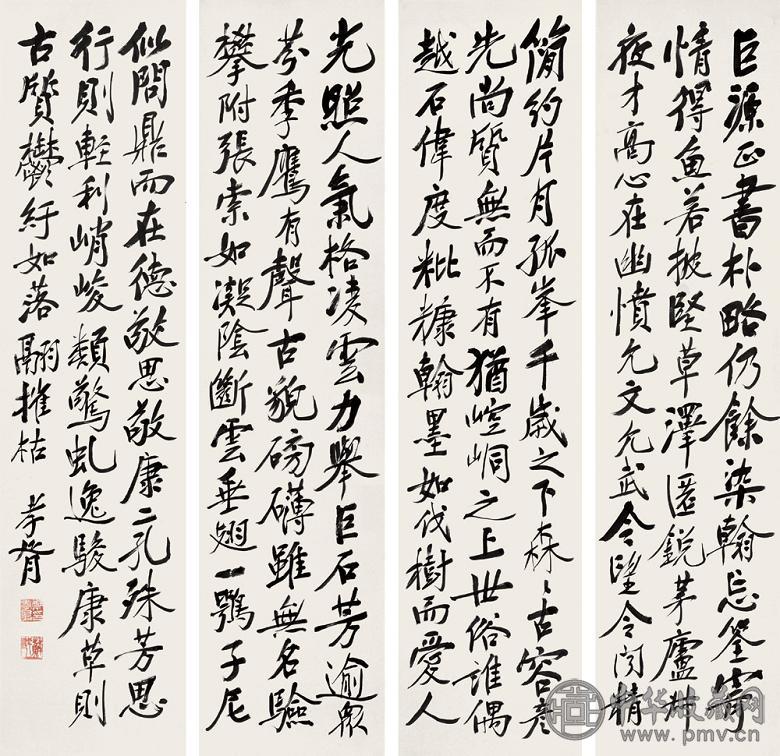 巨源正書朴略仍餘染翰忘筌寄
情得魚若披堅草澤匿銳茅廬叔
夜才高心在幽憤允文允武令望令聞精
簡約片月孤峯千歲之下森〻古容彥
先尚質無而不有猶崆峒之上世俗誰偶
越石偉度粃糠翰墨如伐樹而愛人
光照人氣格凌雲力舉巨石芳逾眾
芬季鷹有聲古貌磅礴雖無名驗
攀附張索如凝陰斷雲垂翅一鶚子尼
似問鼎而在德敬思敬康二孔殊芳思
行則輕利峭峻類驚虬逸駿康草則
古質鬱紆如落翮摧枯 孝胥
中华收藏网
www.pmv.cn